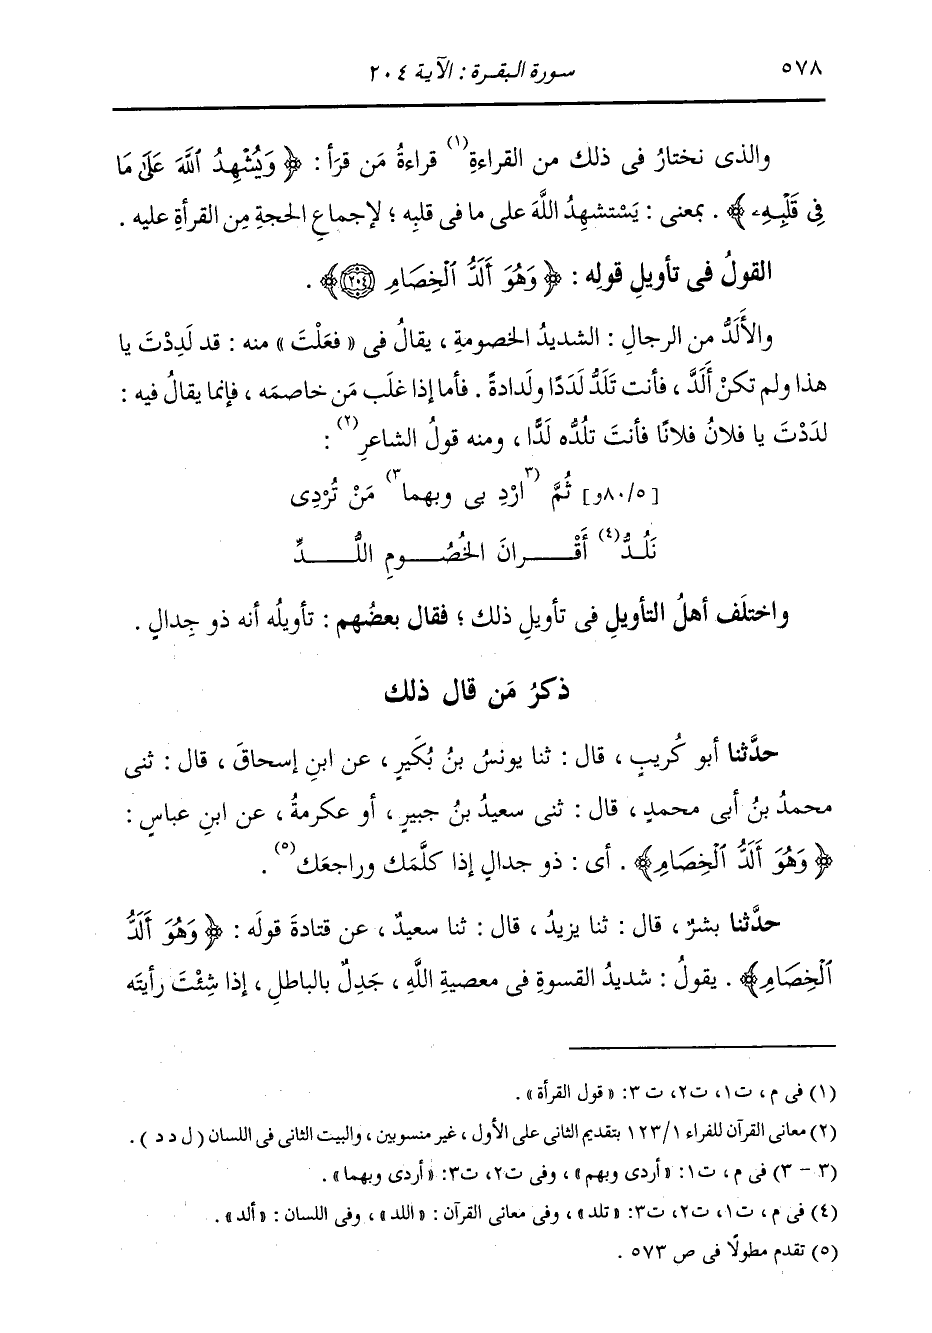 ٥٧٨ سورة البقرة : الآية ٢٠٤
والذى نختارُ فى ذلك من القراءةِ(١) قراءةُ مَن قرَأ : ﴿ وَيُشْهِدُ ٱللَّهَ عَلَىٰ مَا
فِى قَلْبِهِۦ ﴾ . بمعنى : يَسْتشهِدُ اللَّهَ على ما فى قلبِه ؛ لإجماعِ الحجةِ مِن القرأةِ عليه .
القولُ فى تأويلِ قولِه : ﴿ وَهُوَ أَلَدُّ ٱلْخِصَامِ ٢٠٤ ﴾ .
والأَلَدُّ من الرجالِ : الشديدُ الخصومةِ ، يقالُ فى « فعَلْتَ » منه : قد لَدِدْتَ يا
هذا ولم تكنْ أَلَدَّ ، فأنت تَلَدُّ لَدَدًا ولَدادةً . فأما إذا غلَب مَن خاصَمه ، فإنما يقالُ فيه :
لدَدْتَ يا فلانُ فلانًا فأنتَ تلُدُّه لَدًّا ، ومنه قولُ الشاعرِ(٢) :
[٨٠/٥و] ثُمَّ (٣ارْدِ بى وبهما٣) مَنْ تُرْدِى
نَلُدُّ(٤) أَقْـــرانَ الخُصُـــومِ اللُّـــدِّ
واختلَف أهلُ التأويلِ فى تأويلِ ذلك ؛ فقال بعضُهم : تأويلُه أنه ذو جِدالٍ .
ذكرُ مَن قال ذلك
حدَّثنا أبو كُريبٍ ، قال : ثنا يونسُ بنُ بُكَيرٍ ، عن ابنِ إسحاقَ ، قال : ثنى
محمدُ بنُ أبى محمدٍ ، قال : ثنى سعيدُ بنُ جبيرٍ ، أو عكرمةُ ، عن ابنِ عباسٍ :
﴿ وَهُوَ أَلَدُّ ٱلْخِصَامِ ﴾ . أى : ذو جدالٍ إذا كلَّمَك وراجعَك(٥) .
حدَّثنا بشرٌ ، قال : ثنا يزيدُ ، قال : ثنا سعيدٌ ، عن قتادةَ قولَه : ﴿ وَهُوَ أَلَدُّ
ٱلْخِصَامِ ﴾ . يقولُ : شديدُ القسوةِ فى معصيةِ اللَّهِ ، جَدِلٌ بالباطلِ ، إذا شِئْتَ رأيتَه
(١) فى م ، ت١، ت٢، ت٣: « قول القرأة » .
(٢) معانى القرآن للفراء ١٢٣/١ بتقديم الثانى على الأول ، غير منسوبين ، والبيت الثانى فى اللسان ( ل د د ) .
(٣ - ٣) فى م ، ت١: « أردى وبهم » ، وفى ت٢، ت٣: « أردى وبهما » .
(٤) فى م ، ت١، ت٢، ت٣: « تلد » ، وفى معانى القرآن : « اللد » ، وفى اللسان : « ألد » .
(٥) تقدم مطولًا فى ص ٥٧٣ .